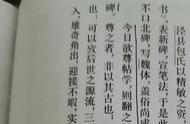 泾县包氏以精敏之资,
书,表新碑,宣笔法,于是此
不口北碑,写魏体,盖俗尚成
今日欲尊帖学,则翻之
碑。尊之者,非以其古也:
也;可以攷后世之源流,三
入,雄奇角出,迎接不暇,实